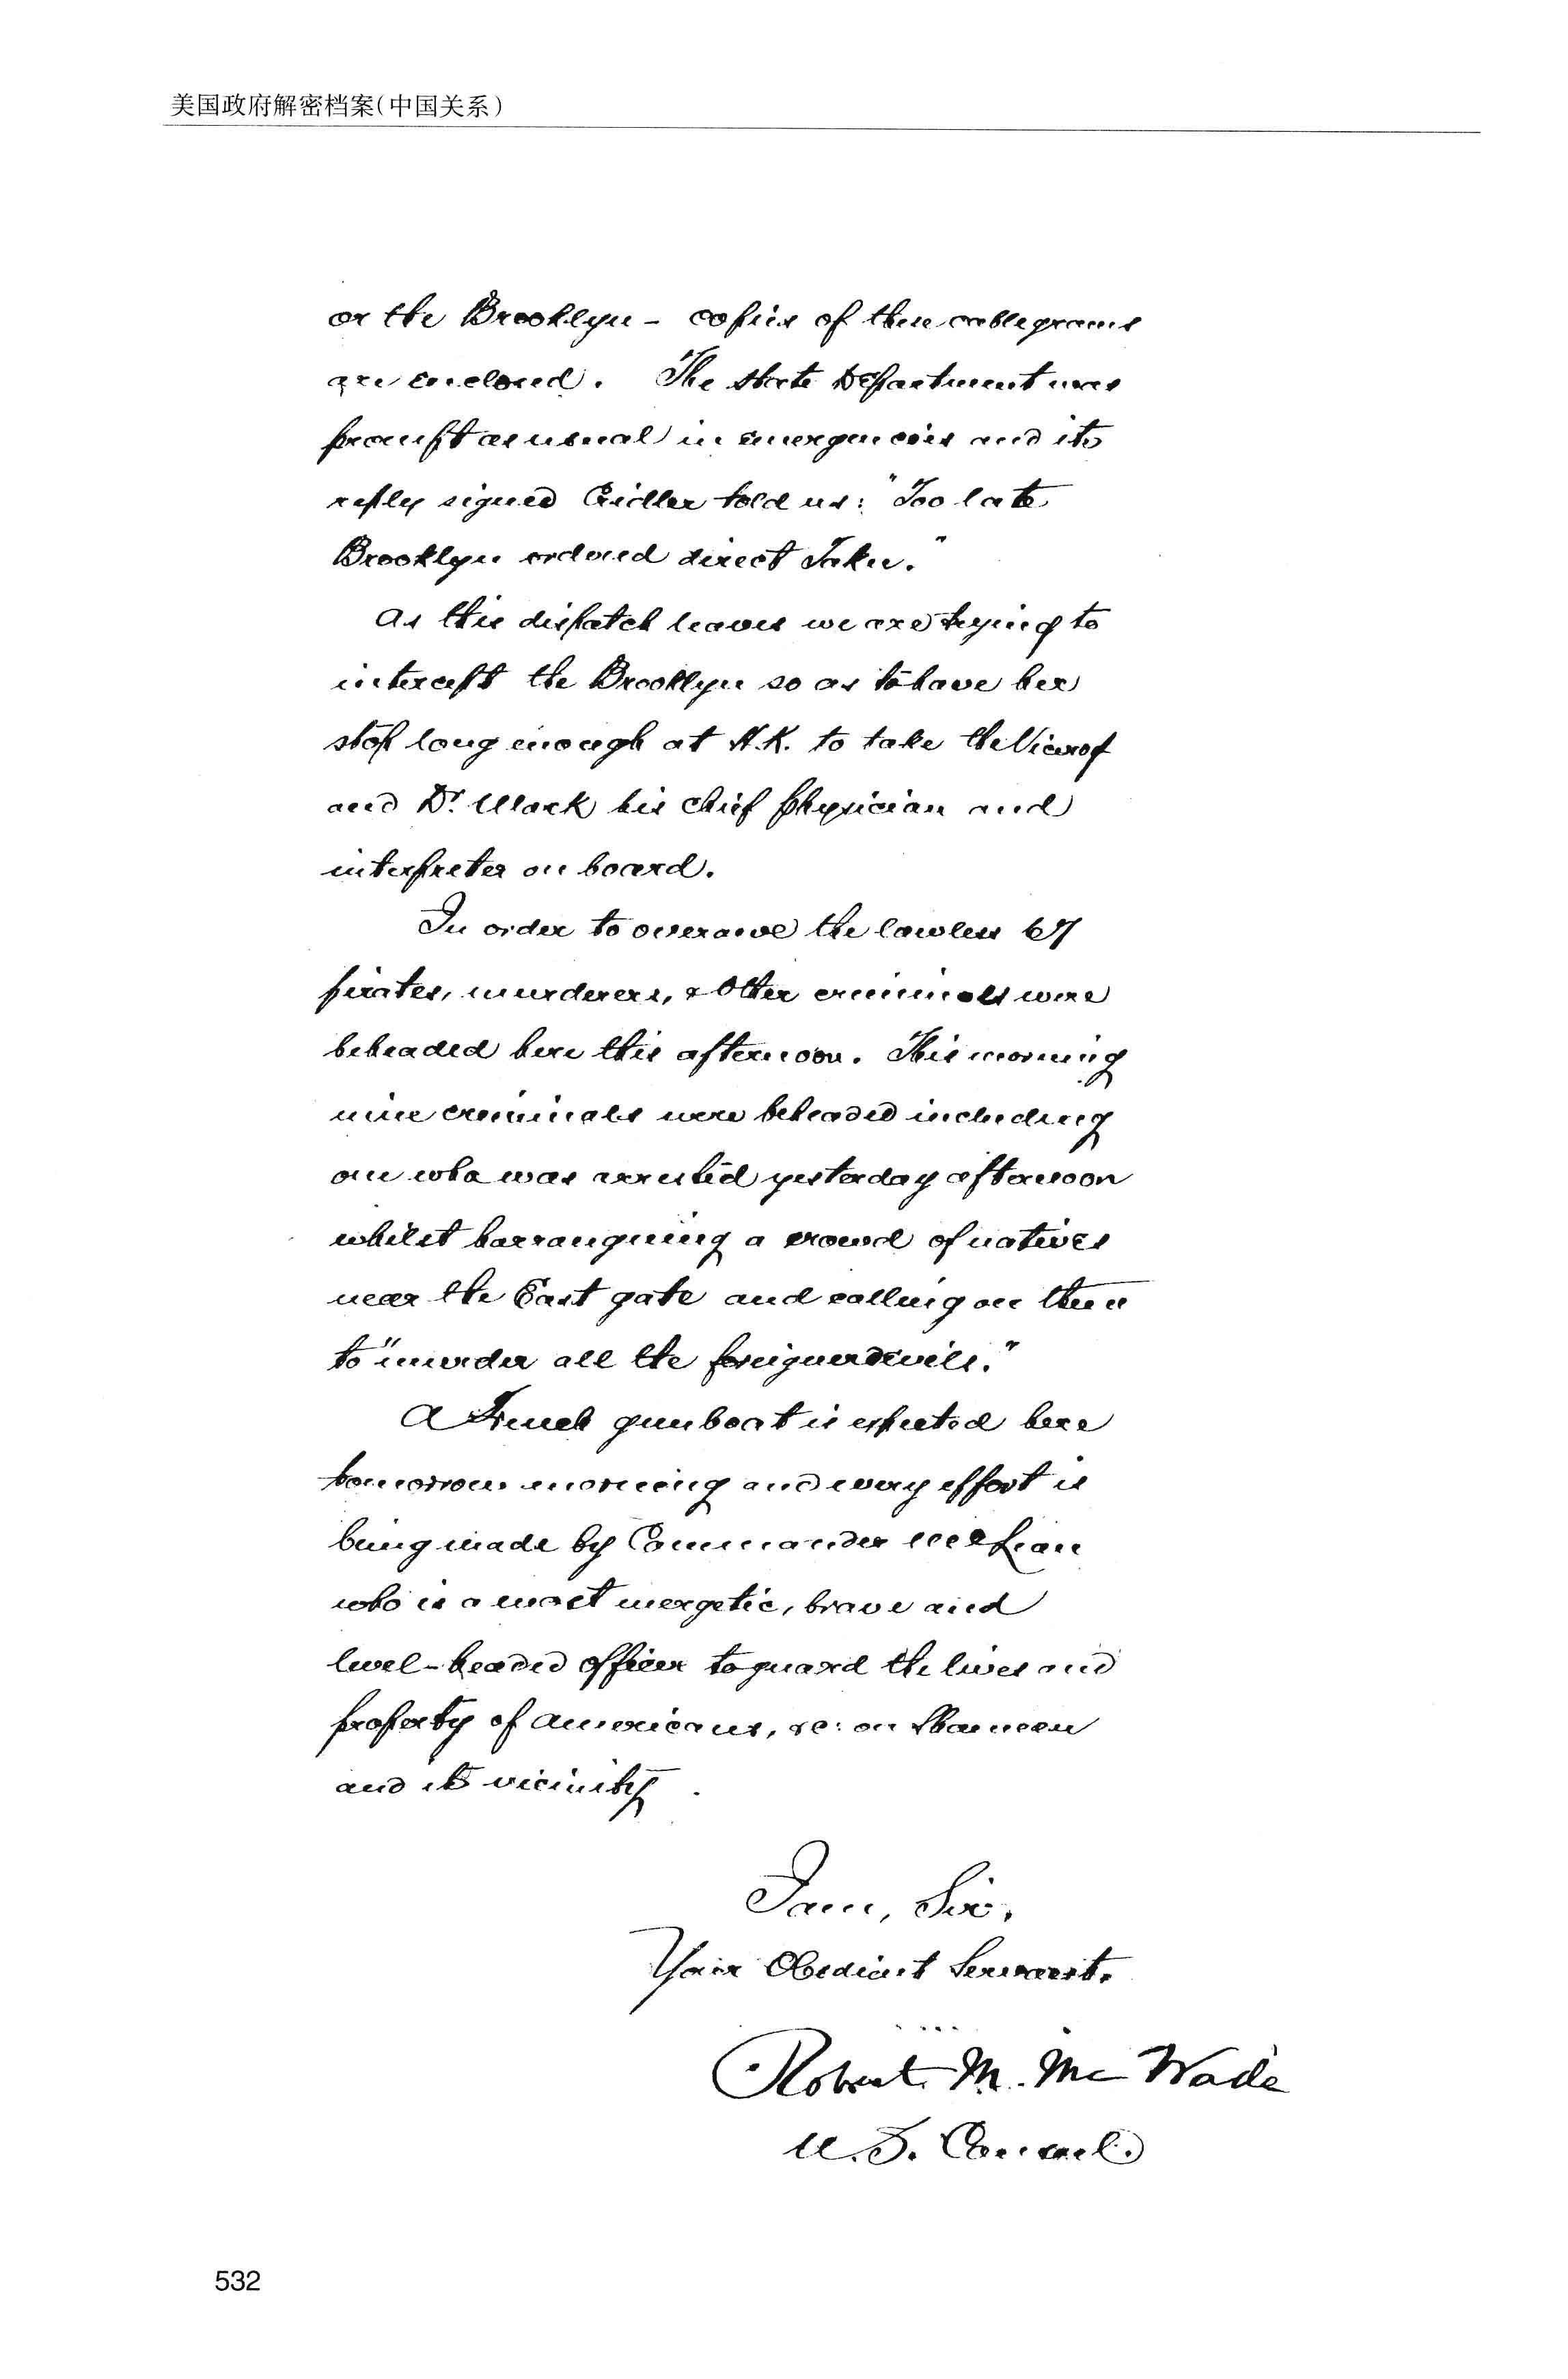 美国政府解密档案(中国关系)
or the Brooklyn - copies of these cablegrams
are enclosed. The State Department was
prompt as usual in emergencies and its
reply signed Cridler told us: "Too late
Brooklyn ordered direct Taku."
As this dispatch leaves we are trying to
intercept the Brooklyn so as to have her
stop long enough at H.K. to take the Viceroy
and Dr. Mark his chief physician and
interpreter on board.
In order to overawe the lawless 67
pirates, murderers, & other criminals were
beheaded here this afternoon. This morning
nine criminals were beheaded including
one who was arrested yesterday afternoon
whilst harranguing a crowd of natives
near the East gate and calling on them
to "murder all the foreigner devils."
A French gunboat is expected here
tomorrow morning and every effort is
being made by Commander
who is a most energetic, brave and
level-headed officer to guard the lives and
property of Americans, &c: on Shameen
and its vicinity.
I am, Sir,
Your Obedient Servant.
Robert M. McWade
U.S. Consul.
532